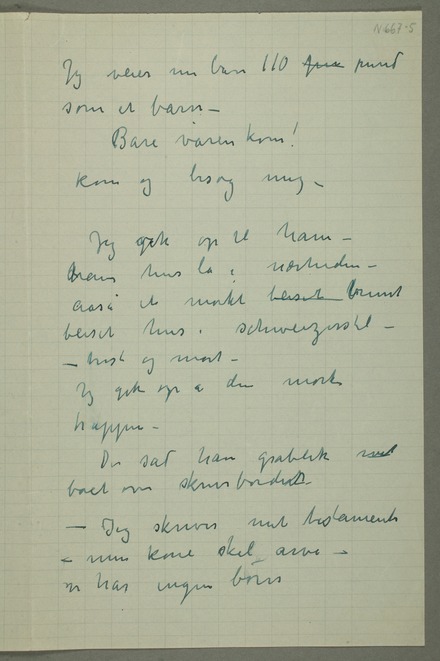 N 667-5
Jeg veier nu bare 110 pund
som et barn –
Bare våren kom!
kom og besøg mig –
Jeg gik op til ham –
hans hus lå i nærheden –
også et mørkt beiset brunt
beiset hus i schweizerstil –
– trist og mørt –
Jeg gik op a den mørke
trappen –
Der sad han gråbleik
bøiet over skrivbordet
– Jeg skriver mit testamente
– min kone skal arve –
vi har ingen børn